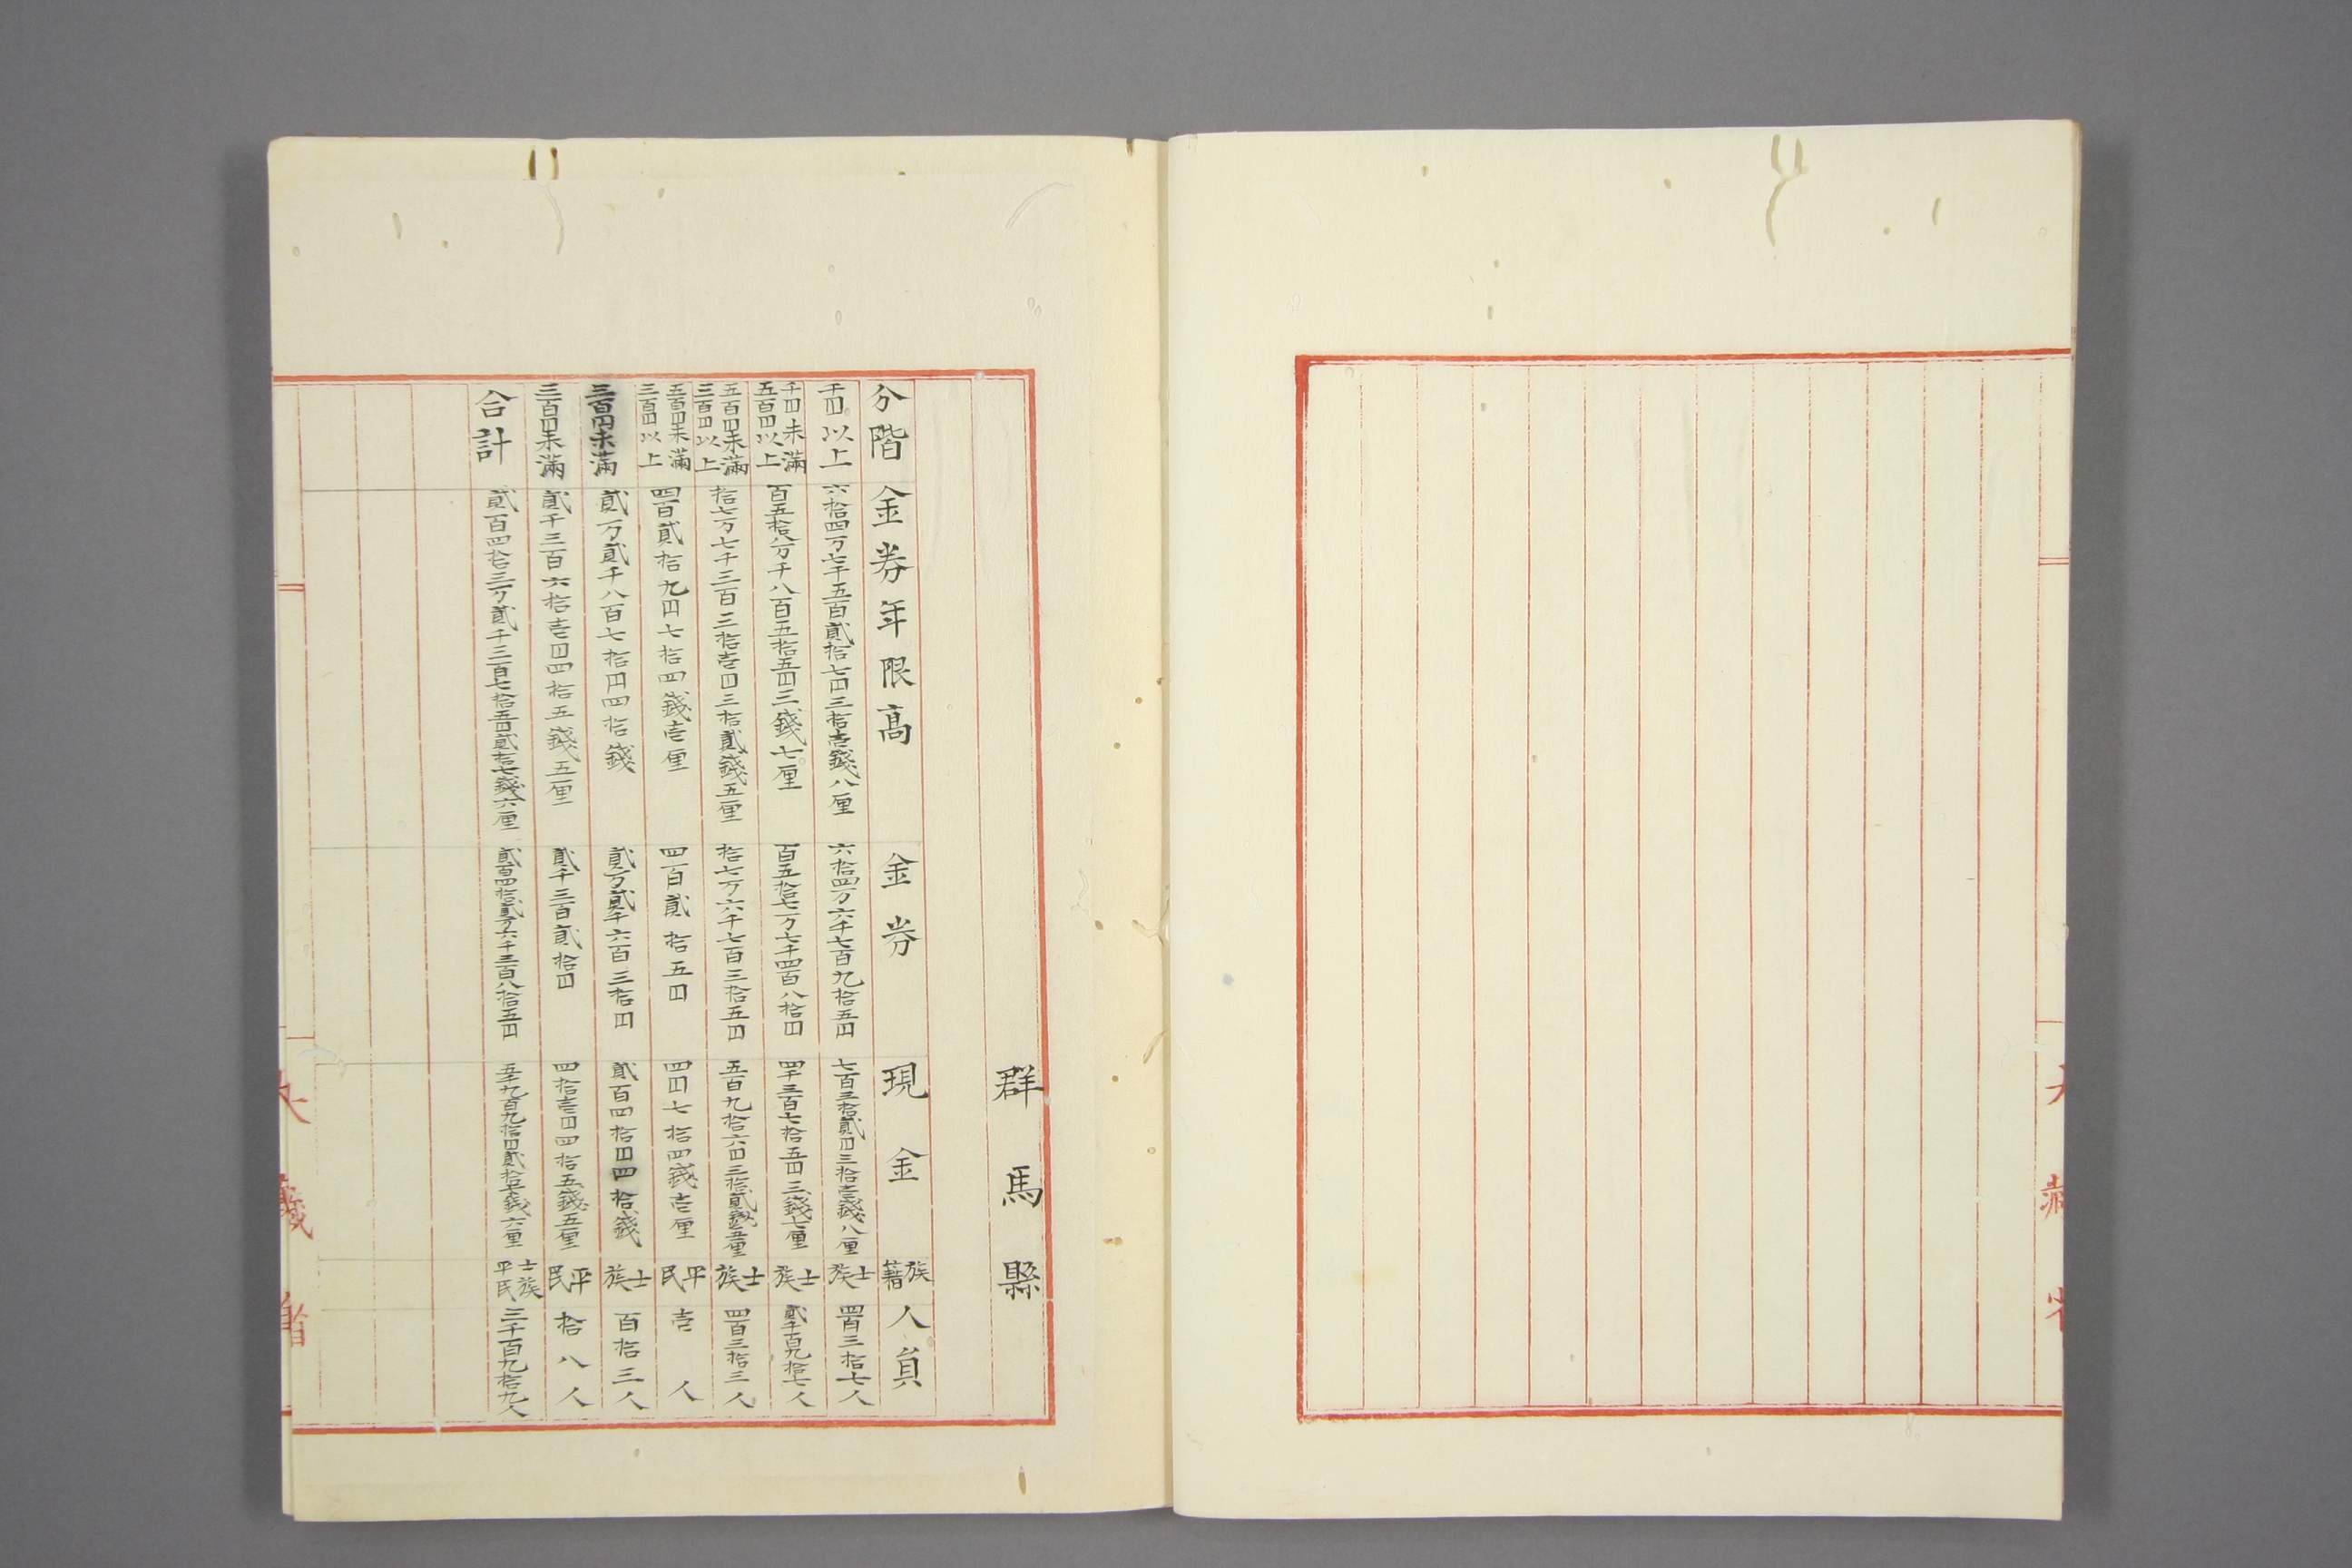 群馬縣
分階 金券年限高 金券 現金 族籍 人員
千円以上 六拾四万七千五百貳拾七円三拾壱錢八厘 六拾四万六千七百九拾五円 七百三拾貳円三拾壱錢八厘 士族 四百三拾七人
千円未満五百円以上 百五拾八万千八百五拾五円三錢七厘 百五拾七万七千四百八拾円 四千三百七拾五円三錢七厘 士族 貳千百九拾七人
五百円未満三百円以上 拾七万七千三百三拾壱円三拾貳錢五厘 拾七万六千七百三拾五円 五百九拾六円三拾貳錢五厘 士族 四百三拾三人
五百円未満三百円以上 四百貳拾九円七拾四錢壱厘 四百貳拾五円 四円七拾四錢壱厘 平民 壱人
三百円未満 貳万貳千八百七拾円四拾錢 貳万貳千六百三拾円 貳百四拾円四拾錢 士族 百拾三人
三百円未満 貳千三百六拾壱円四拾五錢五厘 貳千三百貳拾円 四拾壱円四拾五錢五厘 平民 拾八人
合計 貳百四拾三万貳千三百七拾五円貳拾七錢六厘 貳百四拾貳万六千三百八拾五円 五千九百九拾円貳拾七錢六厘 士族平民 三千百九拾九人
大藏省